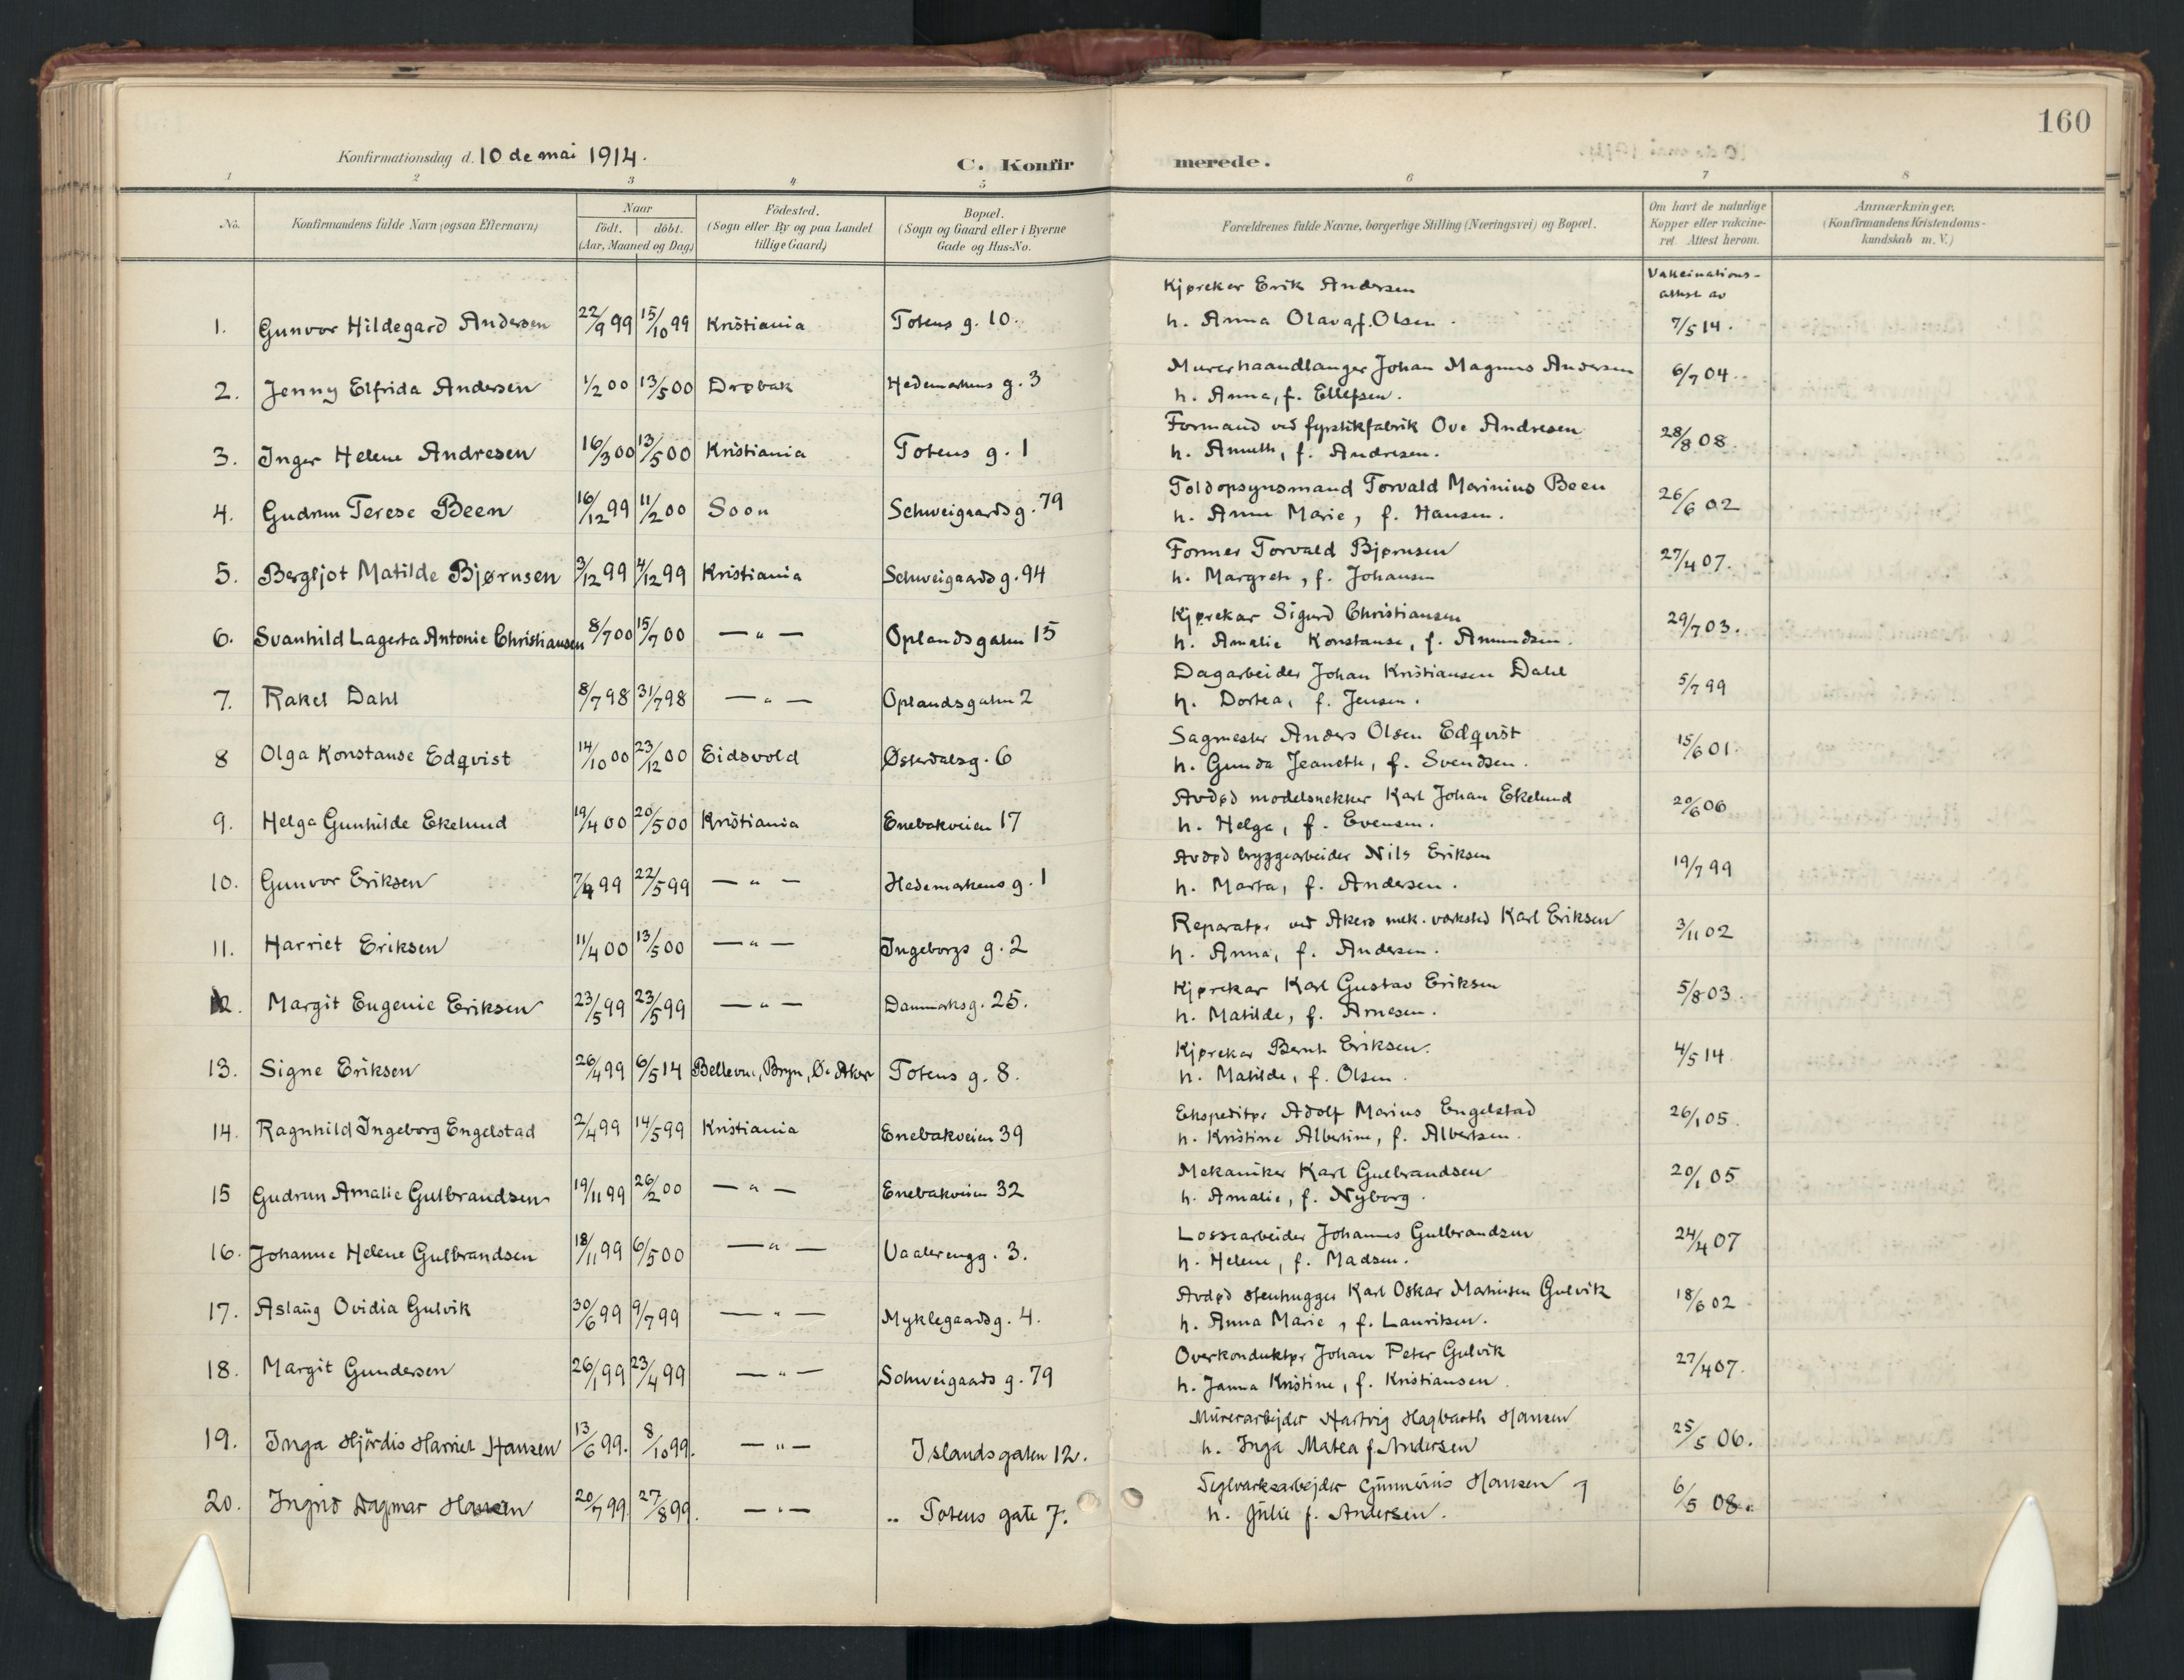 160
Konfirmationsdag d. 10 de mai 1914.
C. Konfirmerede.
1 2 3 4 5 6 7 8
No.
Konfirmandens fulde Navn (ogsaa Efternavn)
Naar
födt. döbt.
(Aar, Maaned og Dag)
Födested.
(Sogn eller By og paa Landet
tillige Gaard)
Bopæl.
(Sogn og Gaard eller i Byerne
Gade og Hus-No.
Forældrenes fulde Navne, borgerlige Stilling (Næringsvei) og Bopæl.
Om havt de naturlige
Kopper eller vakcine-
ret. Attest herom.
Anmærkninger.
(Konfirmandens Kristendoms-
kundskab m. V.)
Vakcinations-
attest av
Kjørekar Erik Andersen
1. Gunvor Hildegard Andersen 22/9 99 15/10 99 Kristiania Totens g. 10. h. Anna Olava f. Olsen. 7/5 14.
Murerhaandlanger Johan Magnus Andersen
2. Jenny Elfrida Andersen 1/2 00 13/5 00 Drøbak Hedemarkens g. 3 h. Anna, f. Ellefsen. 6/7 04.
Formand ved fyrstikfabrik Ove Andresen
3. Inger Helene Andresen 16/3 00 13/5 00 Kristiania Totens g. 1 h. Anneth, f. Andresen. 28/8 08.
Toldopsynsmand Torvald Marinius Been
4. Gudrun Terese Been 16/12 99 11/2 00 Soon Schweigaards g. 79 h. Anne Marie, f. Hansen. 26/6 02
Former Torvald Bjørnsen
5. Bergljot Matilde Bjørnsen 3/12 99 4/12 99 Kristiania Schweigaards g. 94 h. Margrete, f. Johansen 27/4 07.
Kjørekar Sigurd Christiansen
6. Svanhild Lagerta Antonie Christiansen 8/7 00 15/7 00 — " — Oplandsgaten 15 h. Amalie Konstanse, f. Amundsen. 29/7 03.
Dagarbeider Johan Kristiansen Dahl
7. Rakel Dahl 8/7 98 31/7 98 — " — Oplandsgaten 2 h. Dortea, f. Jensen. 5/7 99
Sagmester Anders Olsen Edqvist
8 Olga Konstanse Edqvist 14/10 00 23/12 00 Eidsvold Østerdalsg. 6 h. Gunda Jeanette, f. Svendsen. 15/6 01.
Avdød modelsnekker Karl Johan Ekelund
9. Helga Gunhilde Ekelund 19/4 00 20/5 00 Kristiania Enebakveien 17 h. Helga, f. Evensen. 20/6 06
Avdød bryggearbeider Nils Eriksen
10. Gunvor Eriksen 7/4 99 22/5 99 — " — Hedemarkens g. 1 h. Marta, f. Andersen. 19/7 99
Reparatør ved Akers mek. værksted Karl Eriksen
11. Harriet Eriksen 11/4 00 13/5 00 — " — Ingeborgs g. 2 h. Anna, f. Andersen. 3/11 02
Kjørekar Karl Gustav Eriksen
12. Margit Eugenie Eriksen 23/5 99 23/5 99 — " — Danmarksg. 25. h. Matilde, f. Arnesen. 5/8 03.
Kjørekar Bernt Eriksen.
13. Signe Eriksen 26/4 99 6/5 14 Bellevue, Bryn, Ø. Aker Totens g. 8. h. Matilde, f. Olsen. 4/5 14.
Ekspeditør Adolf Marius Engelstad
14. Ragnhild Ingeborg Engelstad 2/4 99 14/5 99 Kristiania Enebakveien 39 h. Kristine Albertine, f. Albertsen. 26/1 05.
Mekaniker Karl Gulbrandsen
15 Gudrun Amalie Gulbrandsen 19/11 99 26/2 00 — " — Enebakveien 32 h. Amalie, f. Nyborg. 20/1 05
Lossearbeider Johannes Gulbrandsen
16. Johanne Helene Gulbrandsen 18/11 99 6/5 00 — " — Vaalerengg. 3. h. Helene, f. Madsen. 24/4 07
Avdød stenhugger Karl Oskar Martinsen Gulvik
17. Aslaug Ovidia Gulvik 30/6 99 9/7 99 — " — Myklegaardsg. 4. h. Anna Marie, f. Lauritsen. 18/6 02
Overkonduktør Johan Peter Gulvik
18. Margit Gundersen 26/1 99 23/4 99 — " — Schweigaards g. 79 h. Janna Kristine, f. Kristiansen. 27/4 07.
Murerarbejder Hartvig Hagbarth Hansen
19. Inga Hjördis Harriet Hansen 13/6 99. 8/10 99. — " — Islandsgaten 12. h. Inga Matea f. Andersen 25/5 06.
Teglværksarbejder Gunnerius Hansen og
20. Ingrid Dagmar Hansen 20/7 99 27/8 99. — " — " Totens gate 7. h. Julie f. Andersen. 6/5 08.